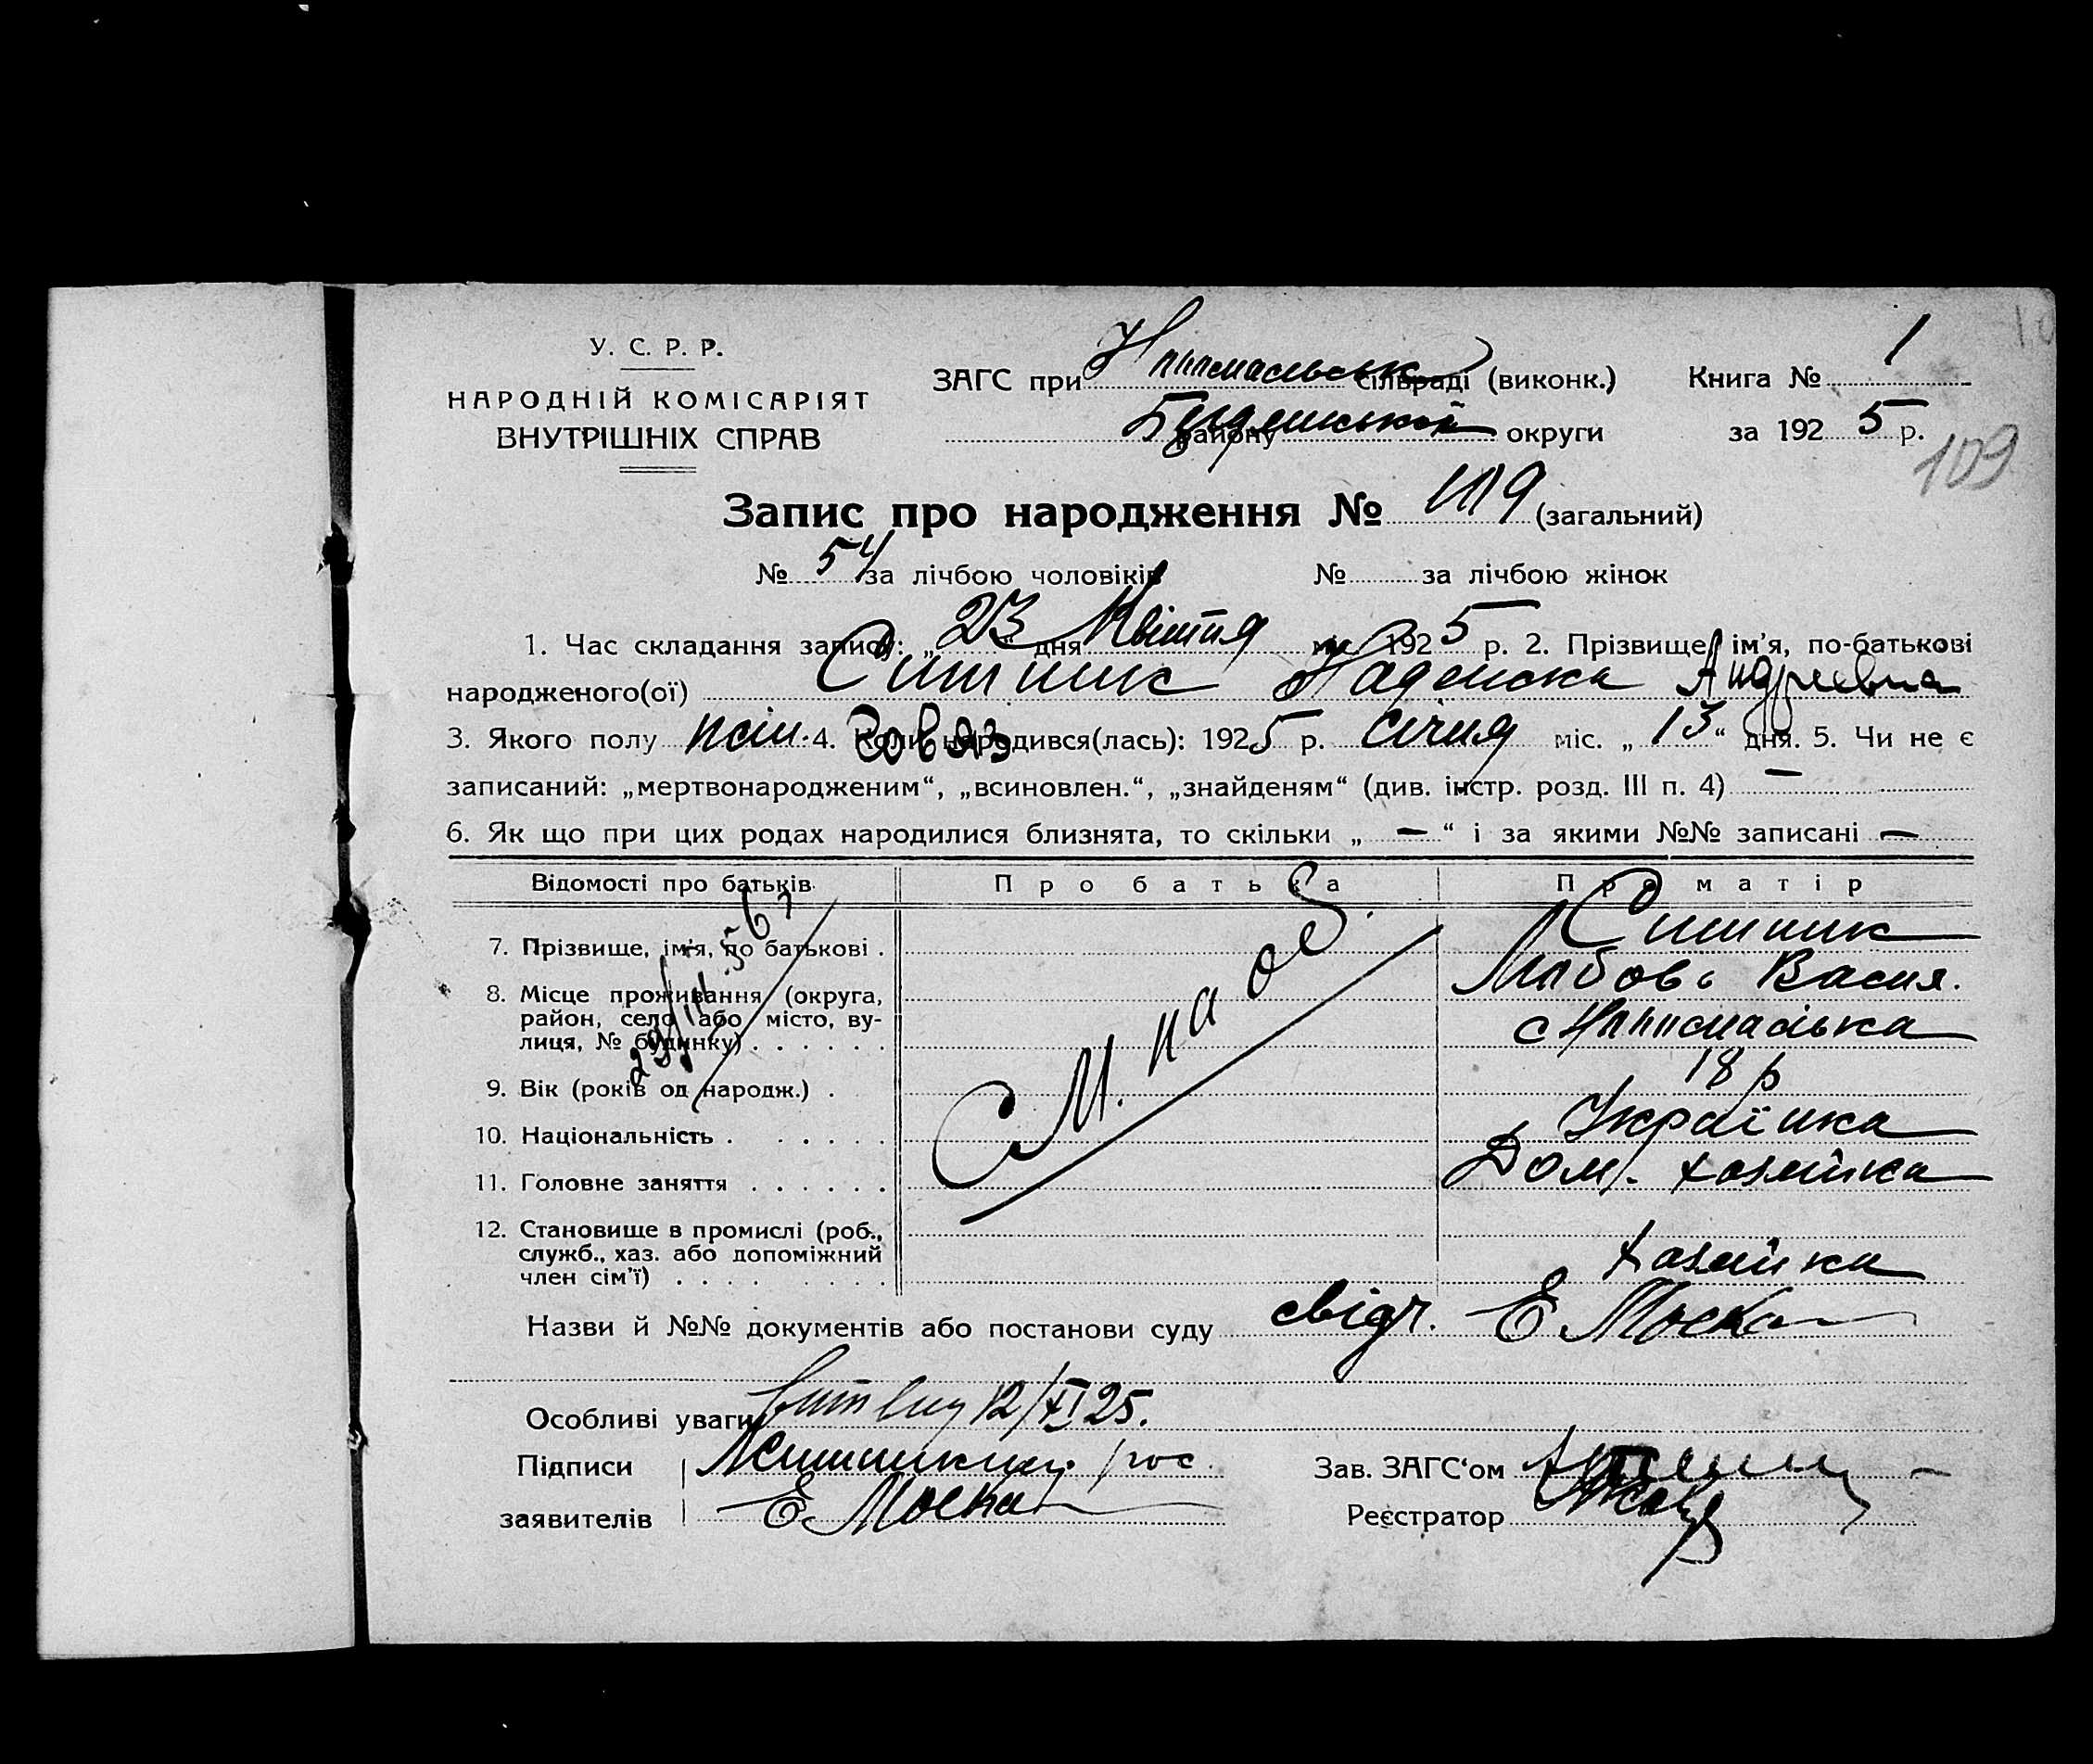 У. С. Р. Р.
НАРОДНІЙ КОМІСАРІЯТ
ВНУТРІШНІХ СПРАВ
ЗАГС при сільраді (виконк.)
району округи
Книга № 1
за 1925 р.
109
Запис про народження № 119 (загальний)
№ 54 за лічбою чоловіків № за лічбою жінок
1. Час складання запису: „23“ дня Квітня міс. 1925 р. 2. Прізвище, ім'я, по-батькові
народженого(ої) Ситник Надежка Андреевна
3. Якого полу жін. 4. Коли народився(лась): 1925 р. січня міс. „13“ дня. 5. Чи не є
записаний: „мертвонародженим“, „всиновлен.“, „знайденям“ (див. інстр. розд. III п. 4) —
6. Як що при цих родах народилися близнята, то скільки „ — “ і за якими №№ записані —
Відомості про батьків Про батька Про матір
7. Прізвище, ім'я, по батькові . Ситник
Любовь Васил.
8. Місце проживання (округа,
район, село або місто, ву-
лиця, № будинку) . . . . . .
9. Вік (років од народж.) . 18 р
10. Національність . . . . . . Українка
11. Головне заняття . . . . . . Дом. хазяйка
12. Становище в промислі (роб.,
служб., хаз. або допоміжний
член сім'ї) . . . . . . . . хазяйка
Назви й №№ документів або постанови суду свідч. Е Моска
Особливі уваги 12/XI 25.
Підписи
заявителів Е Моска
Зав. ЗАГС'ом
Реєстратор